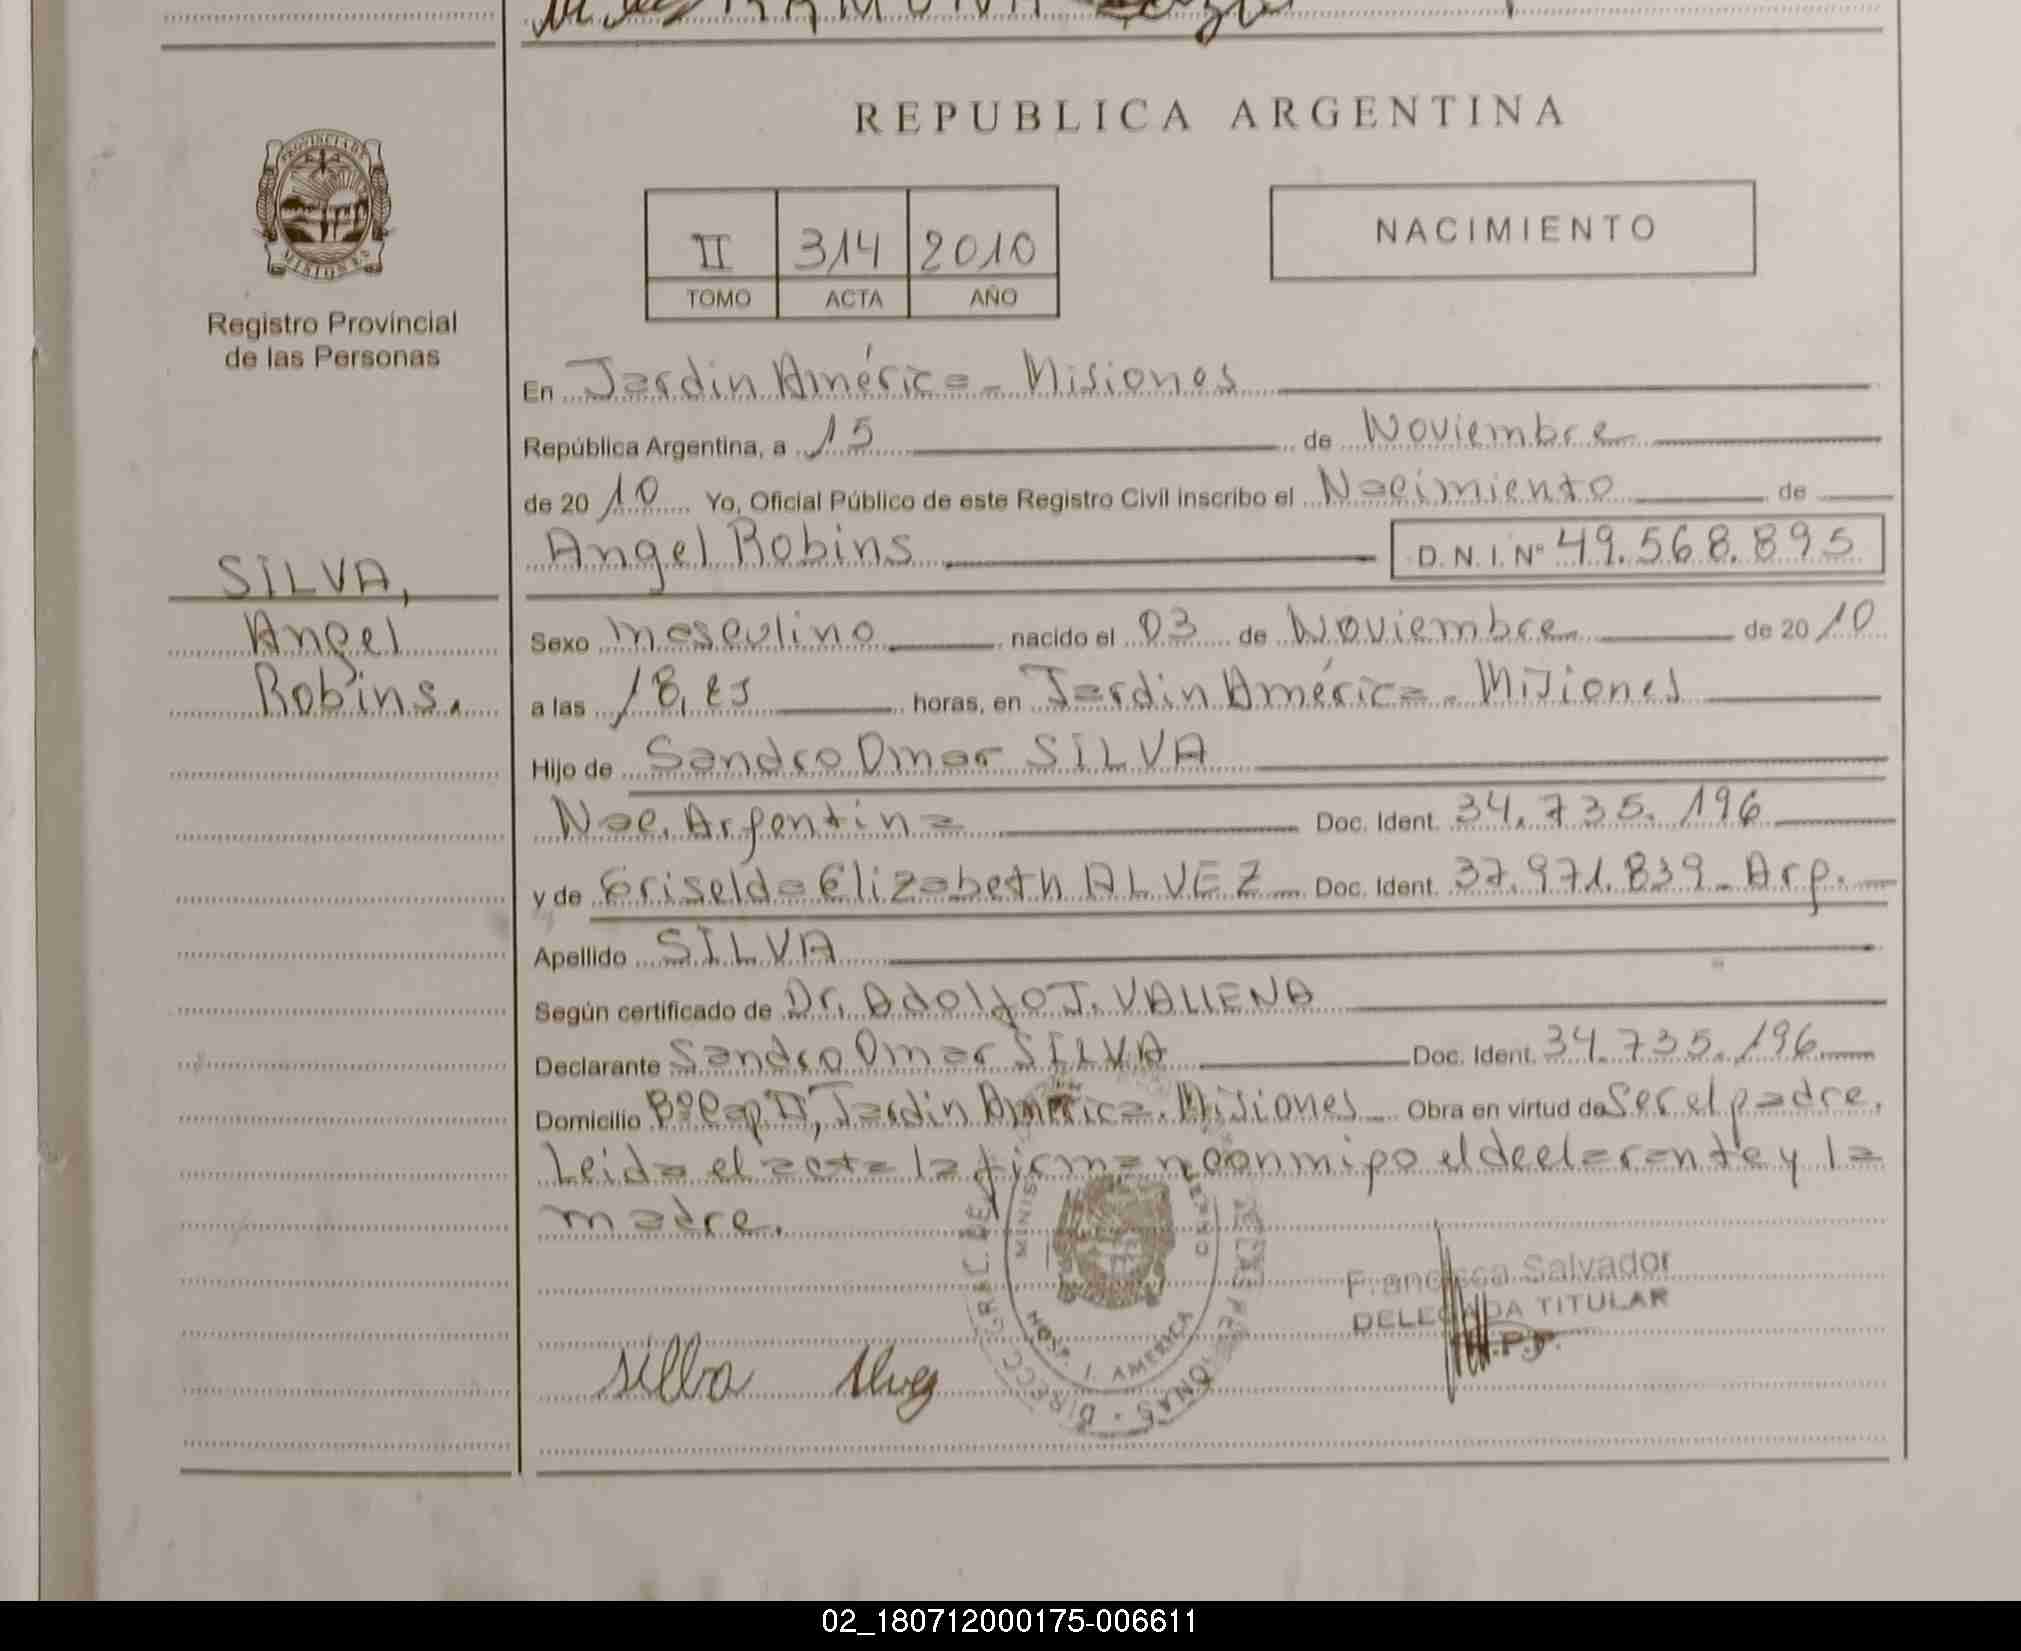 RAMONA
REPUBLICA ARGENTINA
PROVINCIA DE
MISIONES
Registro Provincial
de las Personas
II 314 2010
TOMO ACTA AÑO
NACIMIENTO
En Jardin América - Misiones
República Argentina, a 15 de Noviembre
de 20 10 Yo, Oficial Público de este Registro Civil inscribo el Nacimiento de
Angel Robins D.N.I. Nº 49.568.895
SILVA,
Angel
Robins.
Sexo masculino nacido el 03 de Noviembre de 20 10
a las 18, horas, en Jardin América - Misiones
Hijo de Sandro Omar SILVA
Nac. Argentina Doc. Ident. 34.735.196
y de Griselda Elizabeth ALVEZ Doc. Ident. 37.971.839 - Arg.
Apellido SILVA
Según certificado de Dr. Adolfo J. VALLENA
Declarante Sandro Omar SILVA Doc. Ident. 34.735.196
Domicilio Bº Cap II, Jardin América - Misiones Obra en virtud de ser el padre.
Leida el acta la firman conmigo el declarante y la
madre.
Francisca Salvador
DELEGADA TITULAR
R.P.P.
Silva Alvez
DIRECC. GRAL. DE PERSONAS
MINIST GOBIERNO
HOSP. J. AMERICA
02_180712000175-006611